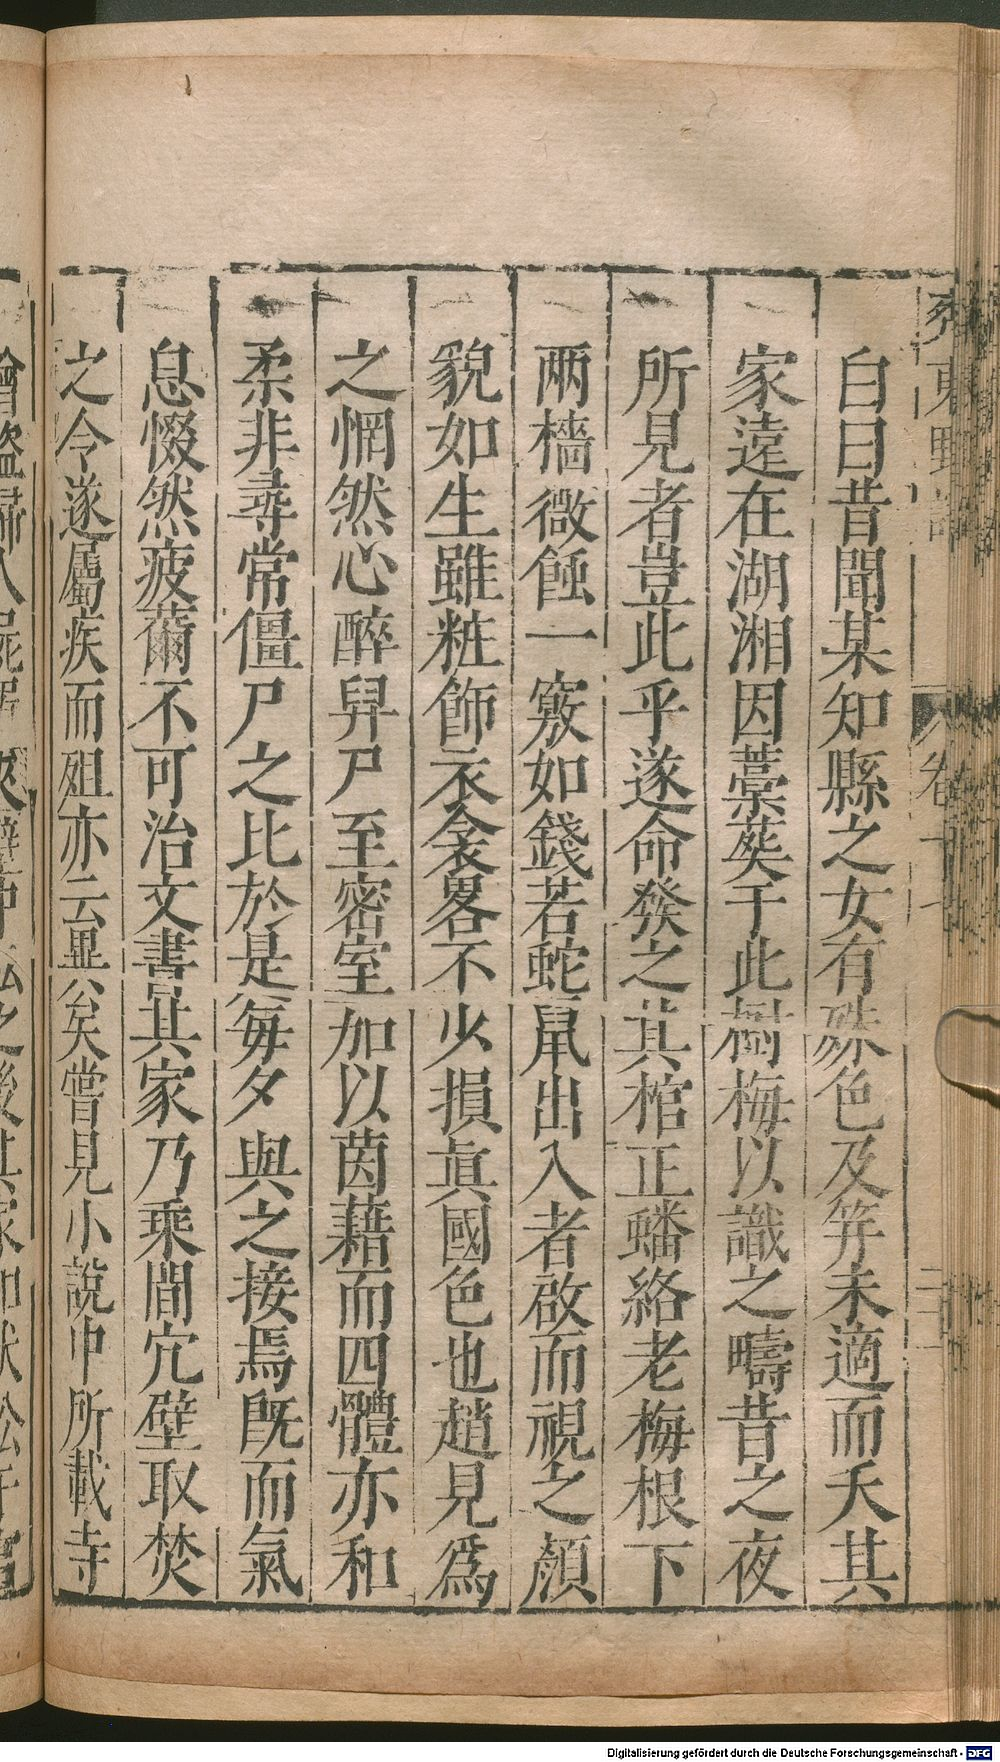 自曰昔聞某知縣之女有殊色及笄未適而夭其
家遠在湖湘因藁葬于此樹梅以識之疇昔之夜
所見者豈此乎遂命發之其棺正蟠絡老梅根下
兩檣微蝕一竅如錢若蛇鼠出入者啟而視之顏
貌如生雖粧飾衣衾畧不少損眞國色也趙見爲
之惘然心醉舁尸至密室加以茵藉而四體亦和
柔非尋常僵尸之比於是每夕與之接焉旣而氣
息惙然疲薾不可治文書其家乃乘間穴壁取焚
之令遂屬疾而殂亦云異矣嘗見小說中所載寺
Digitalisierung gefördert durch die Deutsche Forschungsgemeinschaft - DFG